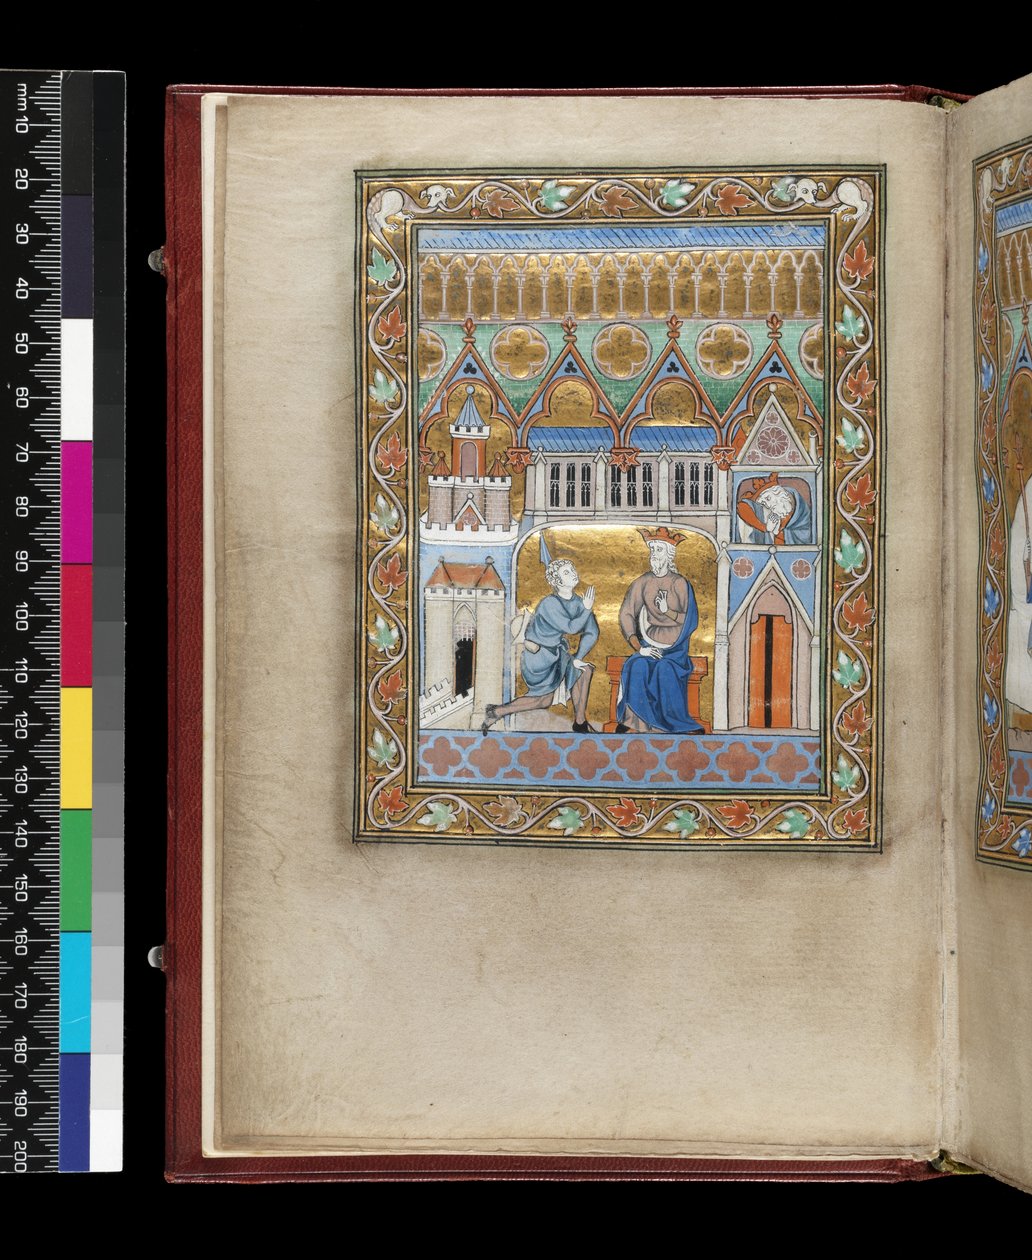 mm
10
20
30
40
50
60
70
80
90
100
110
120
130
140
150
160
170
180
190
200